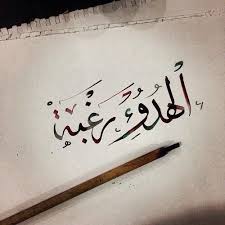 الهدوُء رغبة